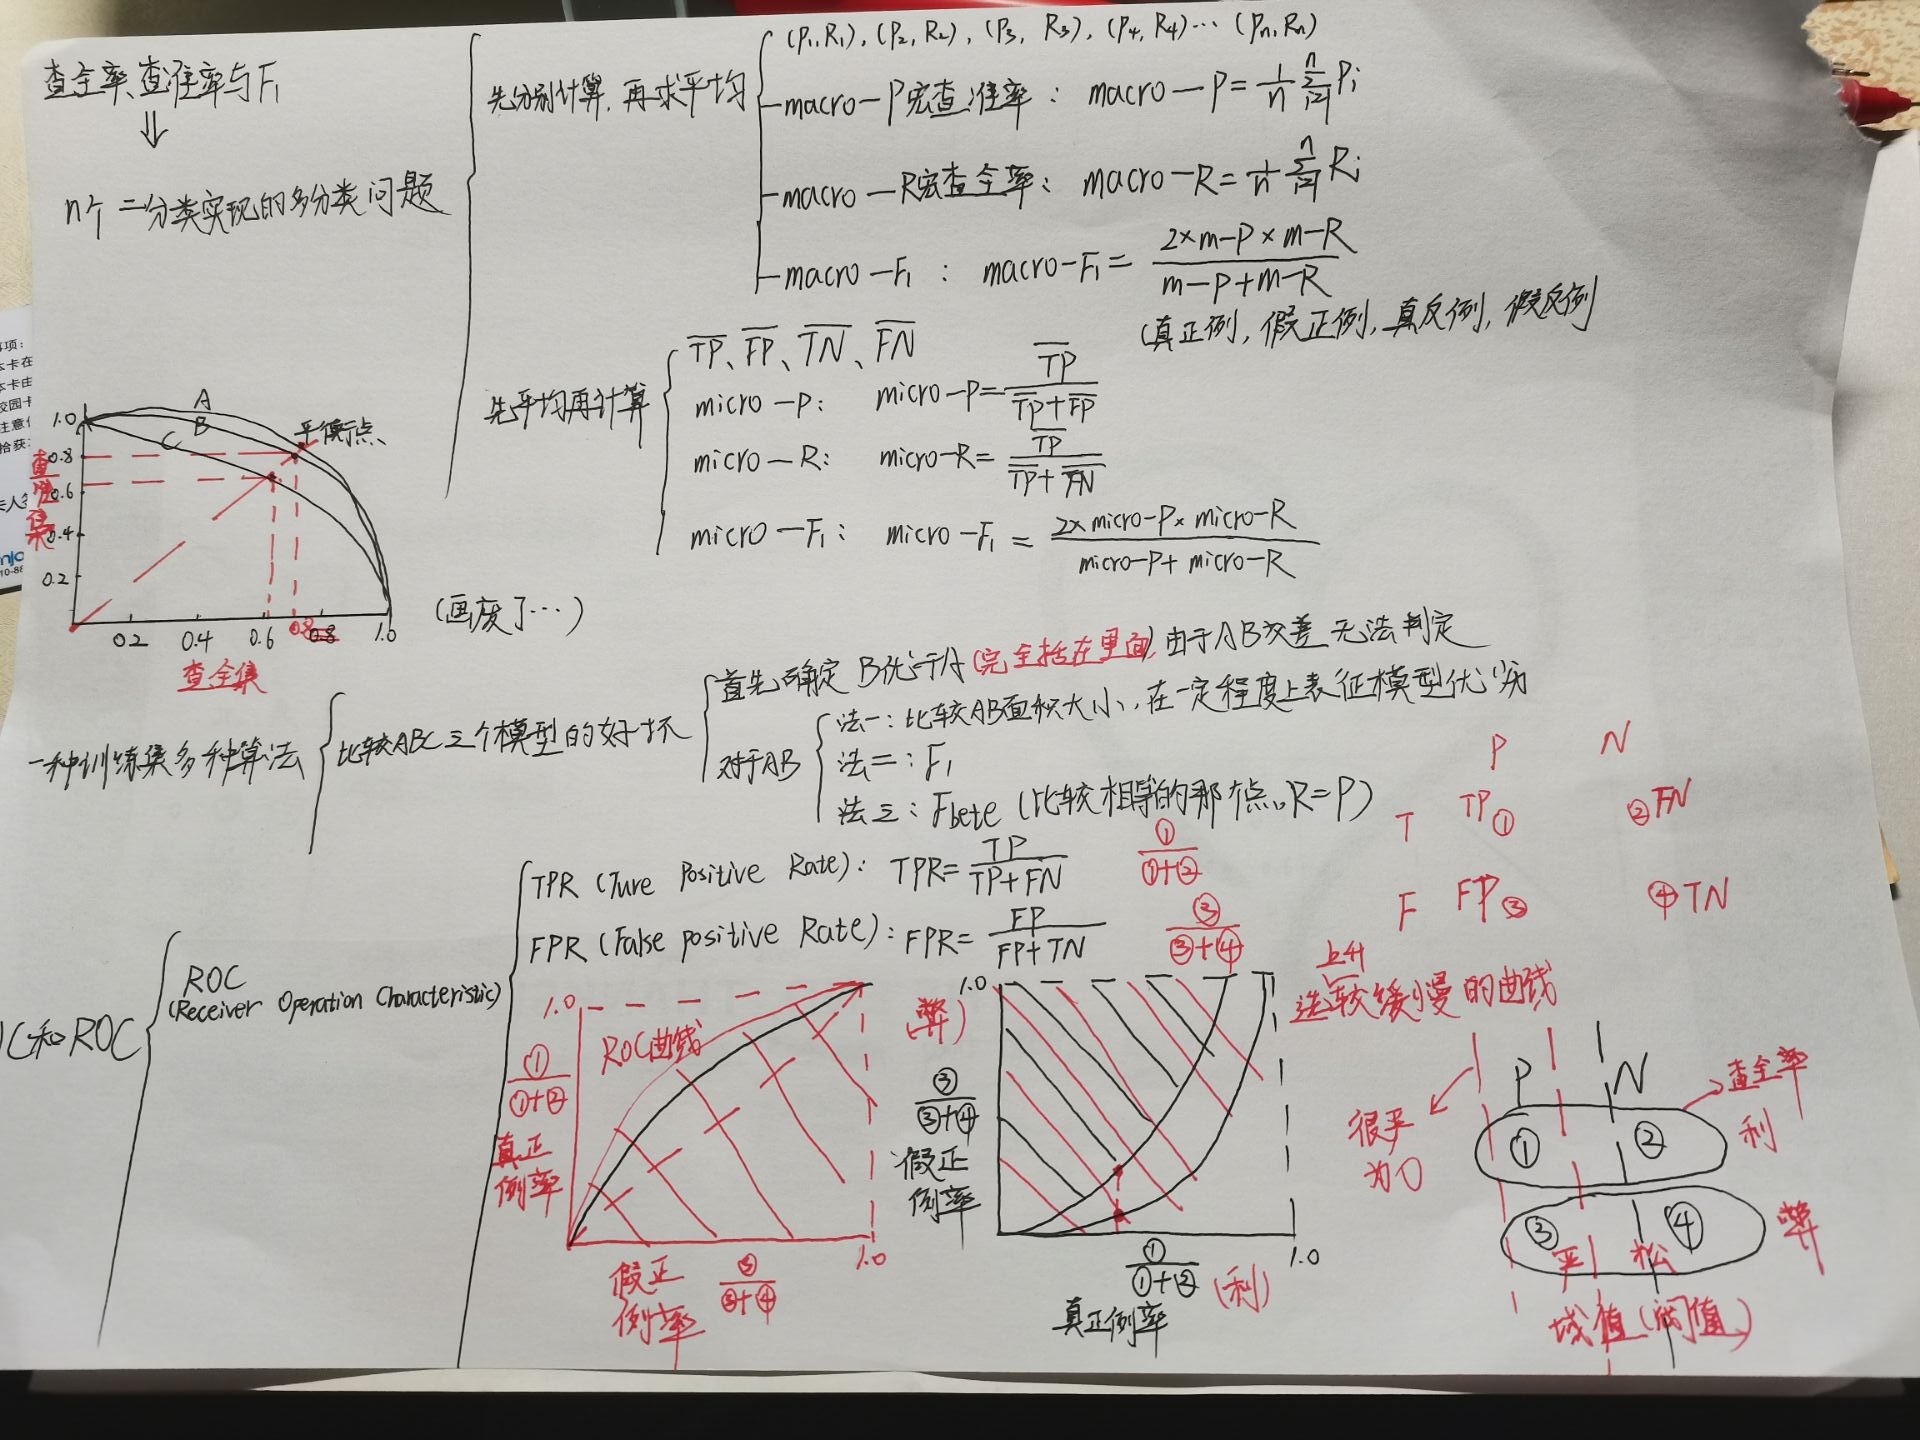 查全率、查准率与F₁
⇓
n个二分类实现的多分类问题
先分别计算,再求平均
(P₁,R₁), (P₂,R₂), (P₃, R₃), (P₄, R₄)… (Pn,Rn)
macro-P宏查准率: macro-P=1/n Σⁿᵢ₌₁ Pi
macro-R宏查全率: macro-R=1/n Σⁿᵢ₌₁ Ri
macro-F₁ : macro-F₁= 2×m-P×m-R / m-P+m-R
(真正例, 假正例, 真反例, 假反例
先平均再计算
T̅P̅、F̅P̅、T̅N̅、F̅N̅
micro-P: micro-P= T̅P̅ / T̅P̅+F̅P̅
micro-R: micro-R= T̅P̅ / T̅P̅+F̅N̅
micro-F₁: micro-F₁ = 2×micro-P×micro-R / micro-P+micro-R
1.0
0.8
0.6
0.4
0.2
A
B
C
平衡点
0.2 0.4 0.6 0.8 0.8 1.0
查全集
(画废了…)
一种训练集多种算法
比较ABC三个模型的好坏
首先确定 B优于 (完全括在里面) 由于AB交差 无法判定
对于AB
法一: 比较AB面积大小, 在一定程度上表征模型优劣
法二: F₁
法三: Fbete (比较相等的那个点, R=P)
P N
T TP① ②FN
F FP③ ④TN
C和ROC
ROC
(Receiver Operation Characteristic)
TPR (Ture Positive Rate): TPR= TP / TP+FN ① / ①+②
FPR (False positive Rate): FPR= FP / FP+TN ③ / ③+④
1.0
ROC曲线
① / ①+②
真正
例率
假正
例率
③ / ③+④
1.0
1.0
(弊)
③ / ③+④
假正
例率
① / ①+② (利)
真正例率
1.0
上升
选较缓慢的曲线
P N
查全率
利
① ②
很严
为0
③ ④
弊
严 松
域值(阈值)